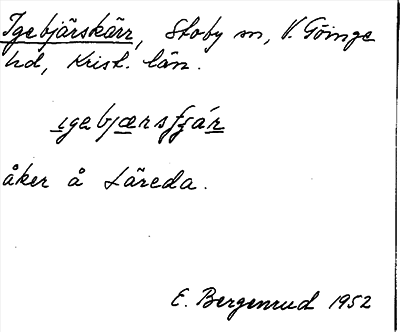 Igebjärskärr, Stoby sn, V. Göinge
hd, Krist. län.
ıgebjærsʃɟár
åker å Läreda.
E. Bergenrud 1952